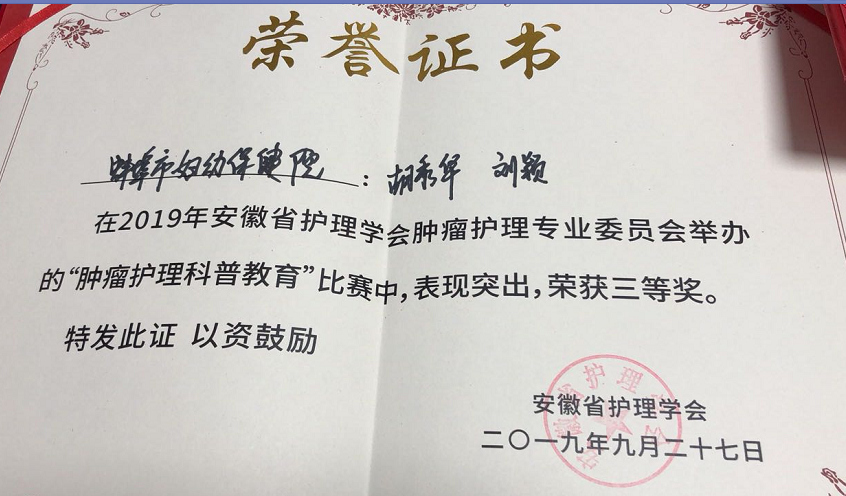 荣誉证书
蚌埠市妇幼保健院：胡秀华 刘颖
在2019年安徽省护理学会肿瘤护理专业委员会举办
的“肿瘤护理科普教育”比赛中，表现突出，荣获三等奖。
特发此证 以资鼓励
安徽省护理学会
安徽省护理学会
二〇一九年九月二十七日